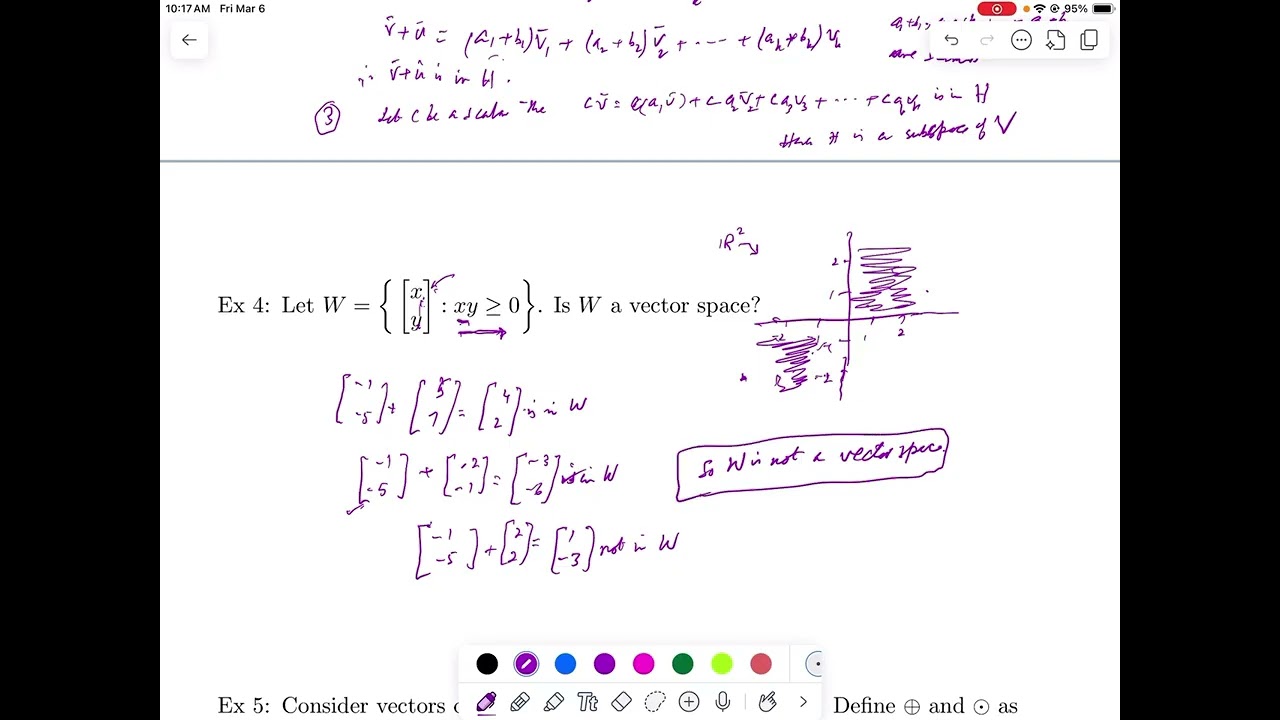 10:17 AM Fri Mar 6
95%
v̄+ū = (a₁+b₁)v̄₁ + (a₂+b₂)v̄₂ + ---- + (
∴ v̄+ū is in H.
③ Let C be a scalar the cv̄ = + ca₂v̄₂ + ca₃v₃ + ... + is in H
H is a subspace of V
ℝ²
Ex 4: Let W = { [x y] : xy ≥ 0 }. Is W a vector space?
2
1
-2
1
2
-2
[-1 -5] + [5 7] = [4 2] is in W
[-1 -5] + [-2 -1] = [-3 -6] in W
So W is not a vector space.
[-1 -5] + [2 2] = [1 -3] not in W
Tt
Ex 5: Consider vectors Define ⊕ and ⊙ as